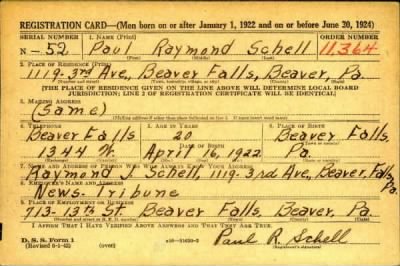 REGISTRATION CARD—(Men born on or after January 1, 1922 and on or before June 30, 1924)
SERIAL NUMBER 1. NAME (Print) ORDER NUMBER
N- 52 Paul Raymond Schell 11,364
(First) (Middle) (Last)
2. PLACE OF RESIDENCE (Print)
1119-3rd Ave., Beaver Falls, Beaver, Pa.
(Number and street) (Town, township, village, or city) (County) (State)
[THE PLACE OF RESIDENCE GIVEN ON THE LINE ABOVE WILL DETERMINE LOCAL BOARD
JURISDICTION; LINE 2 OF REGISTRATION CERTIFICATE WILL BE IDENTICAL]
3. MAILING ADDRESS
(Same)
[Mailing address if other than place indicated on line 2. If same insert word same]
4. TELEPHONE 5. AGE IN YEARS 6. PLACE OF BIRTH
Beaver Falls 20 Beaver Falls,
DATE OF BIRTH
1344 April 16, 1922 Pa.
7. NAME AND ADDRESS OF PERSON WHO WILL ALWAYS KNOW YOUR ADDRESS
Raymond J. Schell, 1119-3rd Ave, Beaver Falls, Pa.
8. EMPLOYER'S NAME AND ADDRESS
News-Tribune
9. PLACE OF EMPLOYMENT OR BUSINESS
713-13th St. Beaver Falls, Beaver, Pa.
(Number and street or R. F. D. number) (Town) (County) (State)
I AFFIRM THAT I HAVE VERIFIED ABOVE ANSWERS AND THAT THEY ARE TRUE.
D. S. S. Form 1
(Revised 6-1-42) (over) 16—21630-2 Paul R. Schell